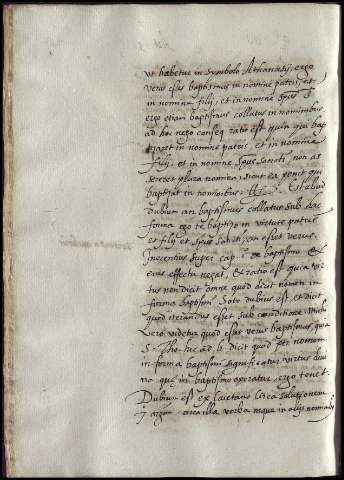 ut habetur in symbolo Athanasij, ergo
verus esset baptismus in nomine patris, et
in nomine filij, et in nomine Spus S.
ergo etiam baptismus collatus in nominibus
ad hoc nego conseq. ratio est quia qui bap
tizaret in nomine patris, et in nomine
filij, et in nomine Spus Sancti, non as
sereret plura nomina, sicut ea ponit qui
baptizat in nominibus. Est aliud
dubium an baptismus collatus sub hac
forma ego te baptizo in virtute patris
et filij et Spus Sancti, esset verus.
Innocentius super cap. de baptismo &
eius effectu negat, & ratio est quia vir
tus non dicit omne quod dicit nomen in
forma baptismi. Soto dubius est et dicit
quod iterandus esset sub conditione. Mihi
vero videtur quod esset verus baptismus, quia
S. Tho. hic ad dicit quod per nomen
in forma baptismi significatur virtus divi
na quę in baptismo operatur, ergo tenet.
Dubium est ex Caietano circa solutionem
argum. circa illa verba neque in alijs nominibus